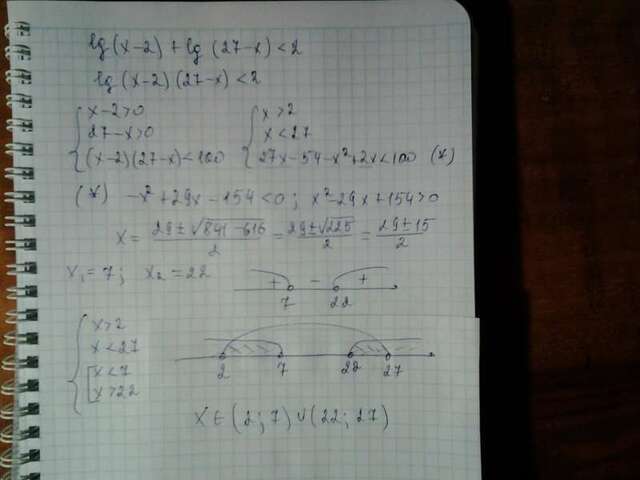 lg(x-2)+lg(27-x)<2
lg(x-2)(27-x)<2
{ x-2>0
27-x>0
(x-2)(27-x)<100
{ x>2
x<27
27x-54-x²+2x<100 (*)
(*) -x²+29x-154<0; x²-29x+154>0
x= (29±√(841-616))/2 = (29±√225)/2 = (29±15)/2
x₁=7; x₂=22
+ - +
7 22
{ x>2
x<27
[ x<7
x>22
2 7 22 27
x∈(2;7)∪(22;27)